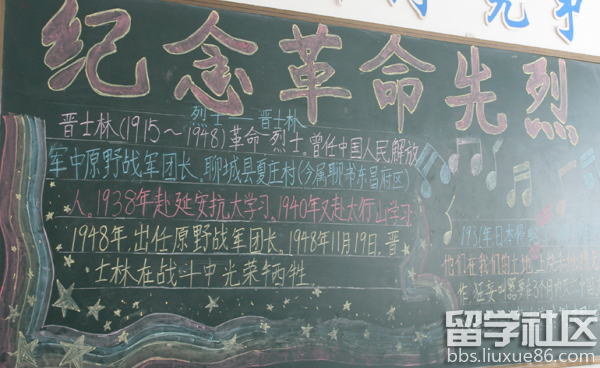 纪念革命先烈
烈士——晋士林
晋士林(1915～1948)革命烈士。曾任中国人民解放
军中原野战军团长、聊城县夏庄村(今属聊书东昌府区)
人。1938年赴延安抗大学习。1940年又赴太行山学习
1948年,出任原野战军团长、1948年11月19日,晋
士林在战斗中光荣牺牲
1931年日本
他们在我们的土地上
作
3个月
留学社区
bbs.liuxue86.com